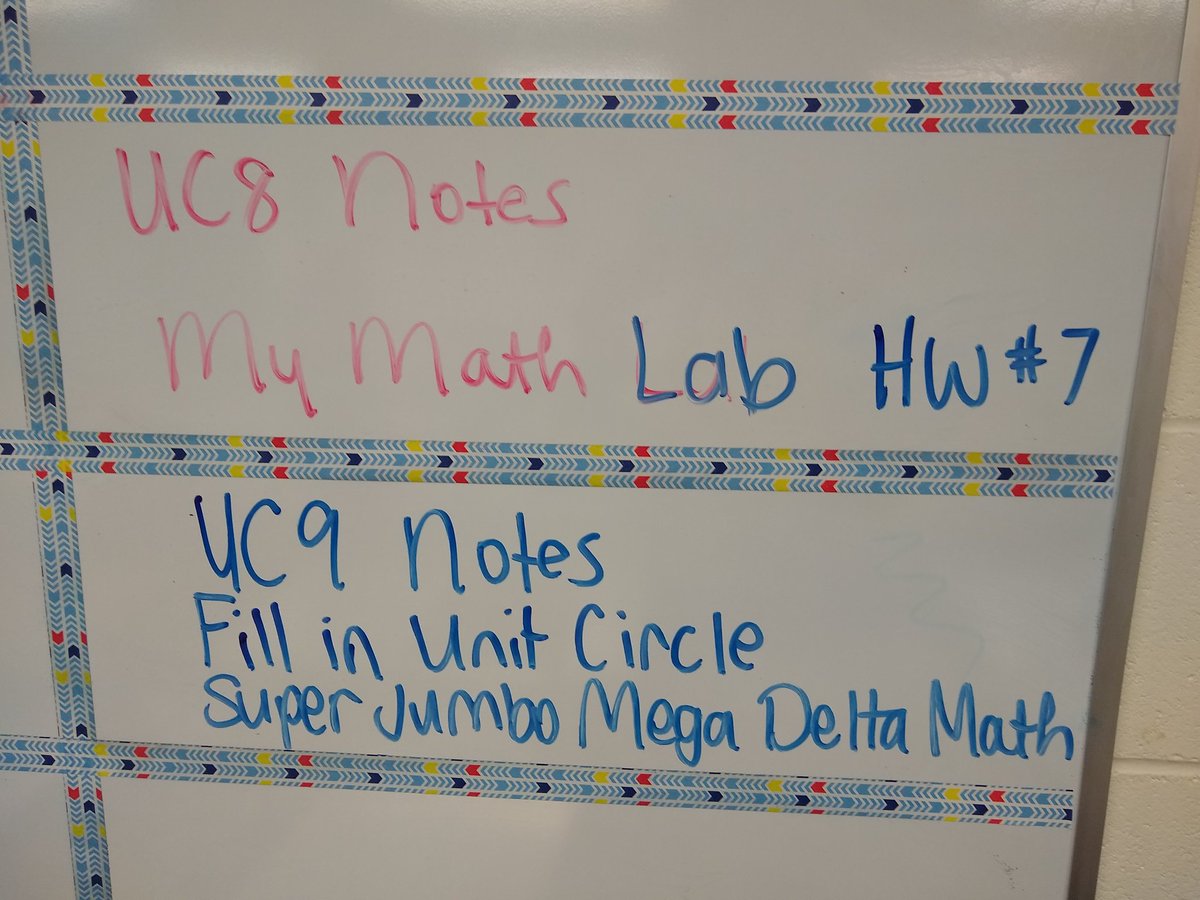 UC8 Notes
My Math Lab HW #7
UC9 Notes
Fill in Unit Circle
Super Jumbo Mega Delta Math